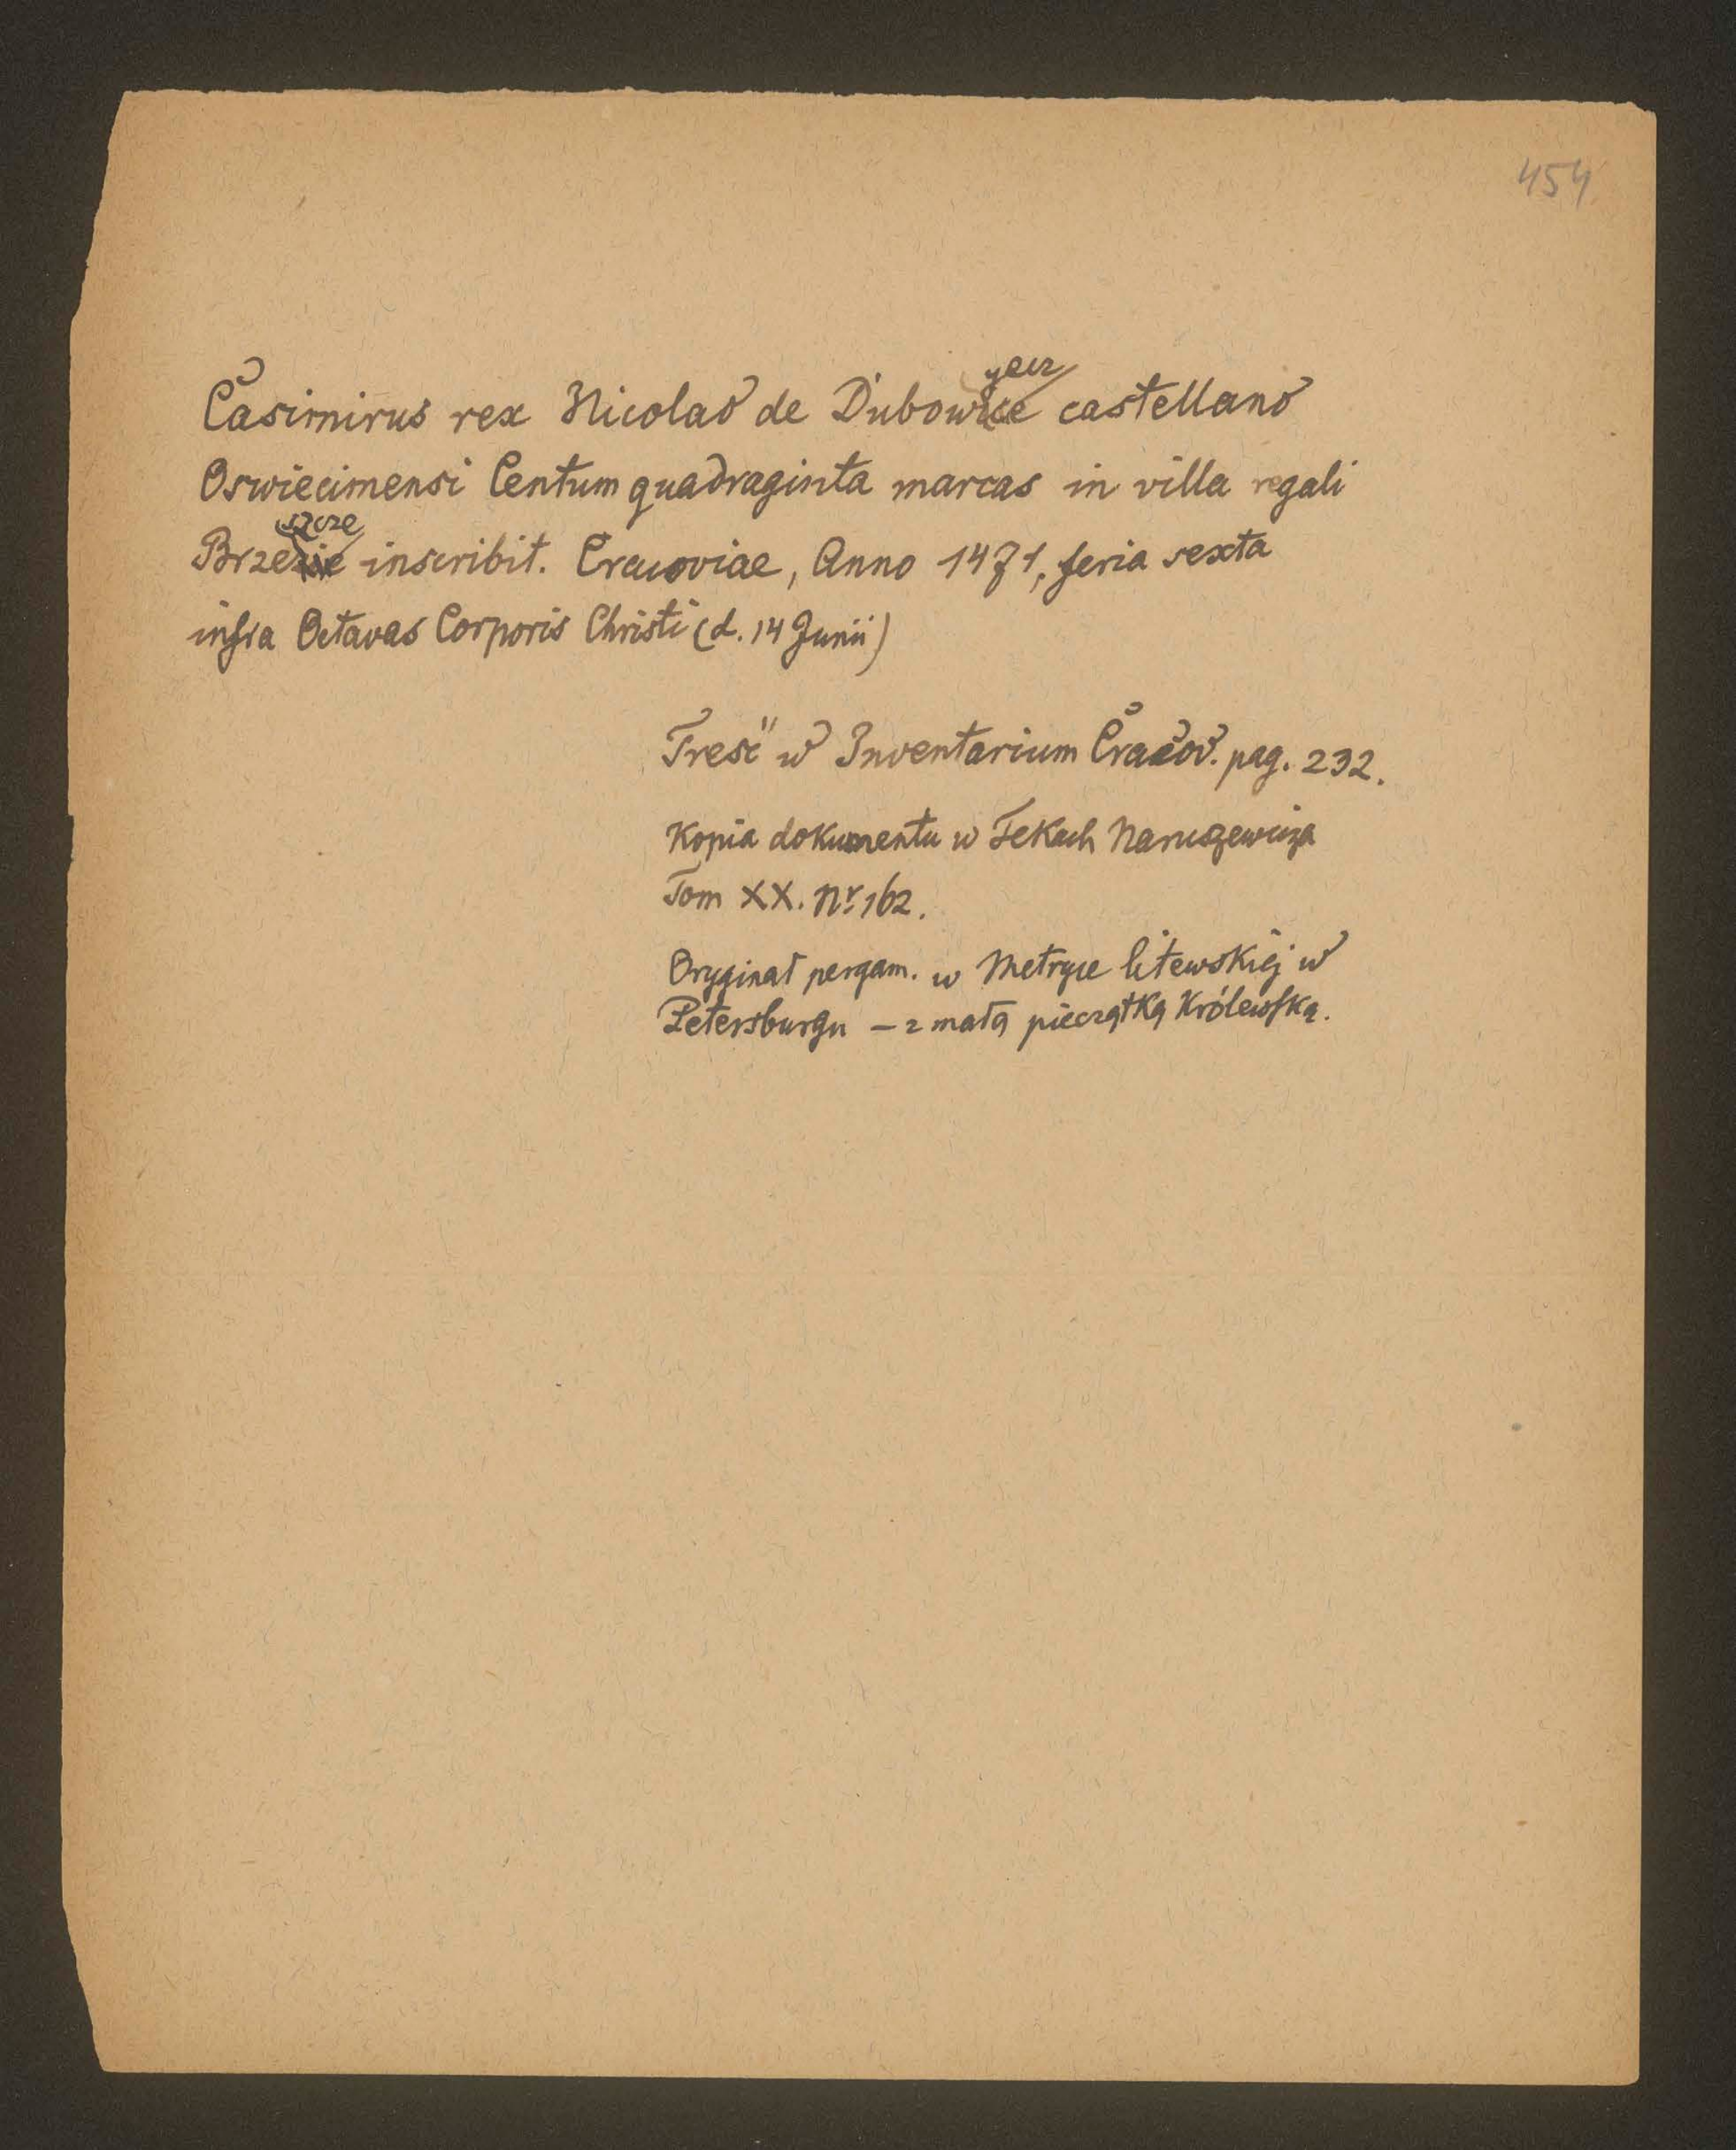 454
Casimirus rex Nicolao de Dubowyecz castellano
Oswiecimensi Centum quadraginta marcas in villa regali
Brzeszcze inscribit. Cracoviae, Anno 1471, feria sexta
infra Octavas Corporis Christi (d. 14 Junii)
Treść w Inventarium Cracov. pag. 232.
Kopia dokumentu w Tekach Naruszewicza
Tom XX. Nr 162.
Oryginał pergam. w Metryce litewskiéj w
Petersburgu – z małą pieczątką Królewską.